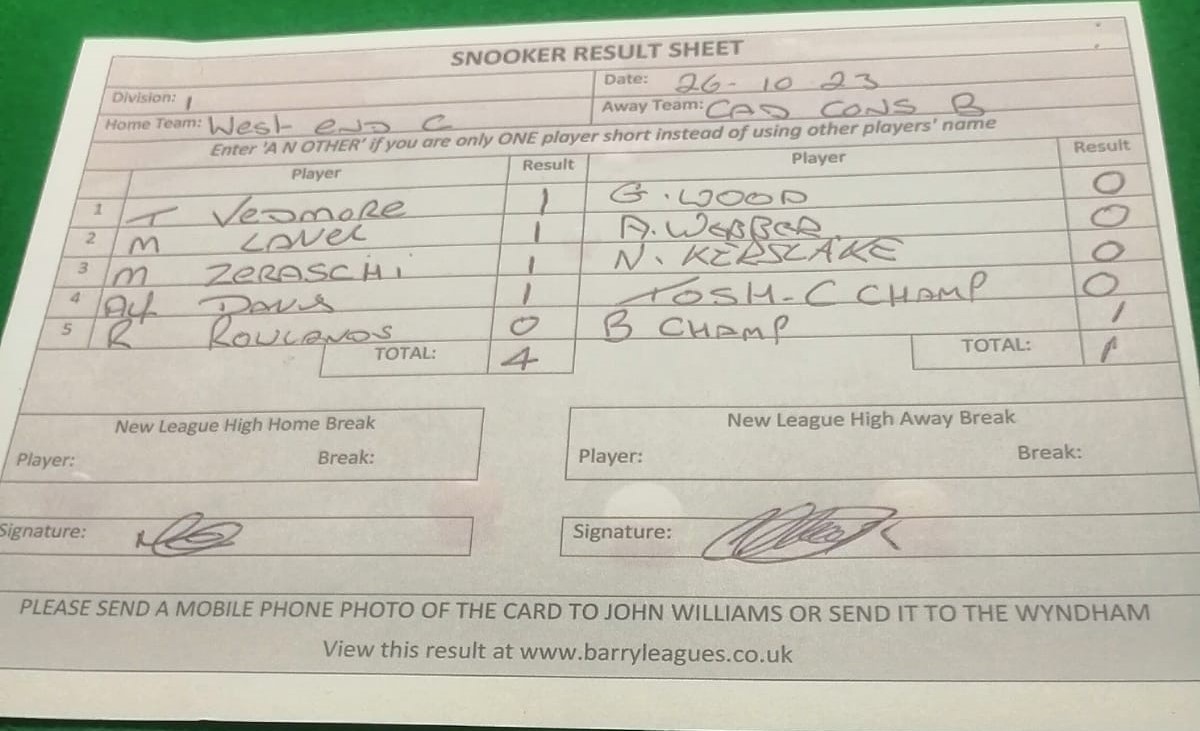 SNOOKER RESULT SHEET
Division: 1 Date: 26-10 23
Home Team: West END C Away Team: CAD CONS B
Enter 'A N OTHER' if you are only ONE player short instead of using other players' name
Player Result Player Result
1 T VEDMORE 1 G. WOOD 0
2 M LAVER 1 A. WEBBER 0
3 M ZERASCHI 1 N. KERSLAKE 0
4 Alf DAVIS 1 TOSH-C CHAMP 0
5 R ROWLANDS 0 B CHAMP 1
TOTAL: 4 TOTAL: 1
New League High Home Break New League High Away Break
Player: Break: Player: Break:
Signature: Signature:
PLEASE SEND A MOBILE PHONE PHOTO OF THE CARD TO JOHN WILLIAMS OR SEND IT TO THE WYNDHAM
View this result at www.barryleagues.co.uk